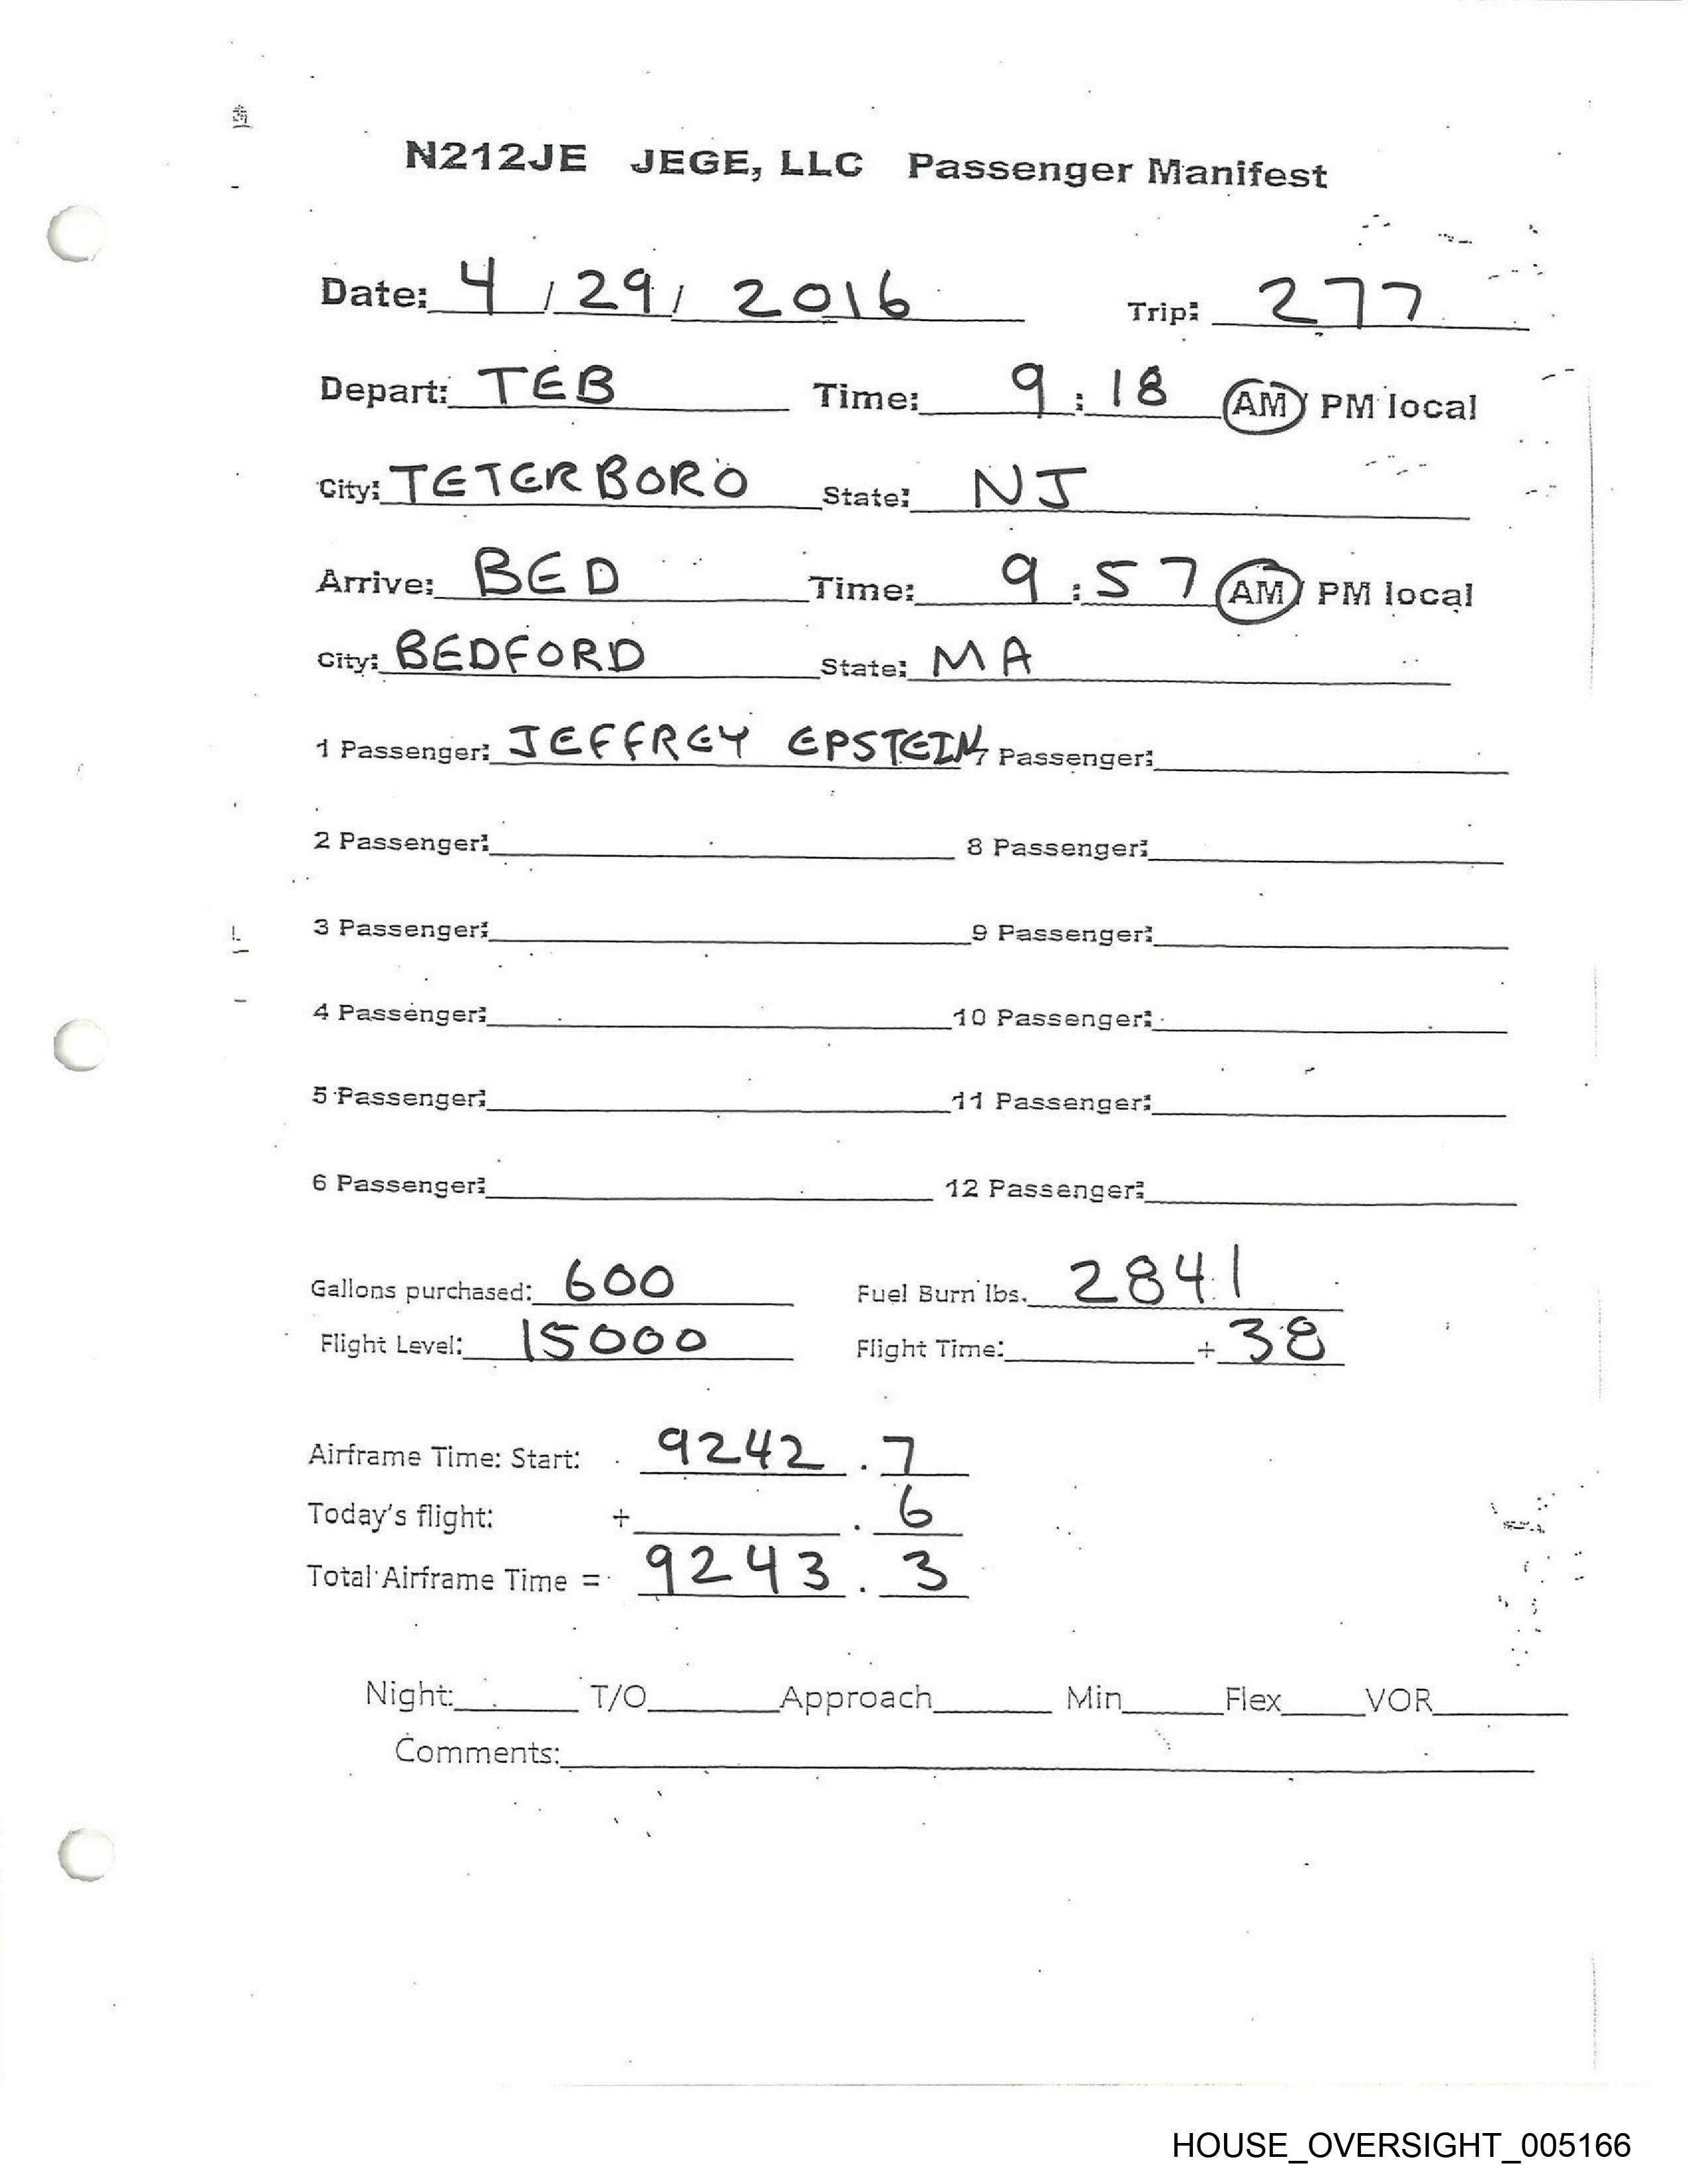 N212JE JEGE, LLC Passenger Manifest
Date: 4 / 29 / 2016 Trip: 277
Depart: TEB Time: 9 : 18 AM / PM local
City: TETERBORO State: NJ
Arrive: BED Time: 9 : 57 AM / PM local
City: BEDFORD State: MA
1 Passenger: JEFFREY EPSTEIN 7 Passenger:
2 Passenger: 8 Passenger:
3 Passenger: 9 Passenger:
4 Passenger: 10 Passenger:
5 Passenger: 11 Passenger:
6 Passenger: 12 Passenger:
Gallons purchased: 600 Fuel Burn lbs. 2841
Flight Level: 15000 Flight Time: + 38
Airframe Time: Start: 9242 . 7
Today's flight: + . 6
Total Airframe Time = 9243 . 3
Night: T/O Approach Min Flex VOR
Comments:
HOUSE_OVERSIGHT_005166